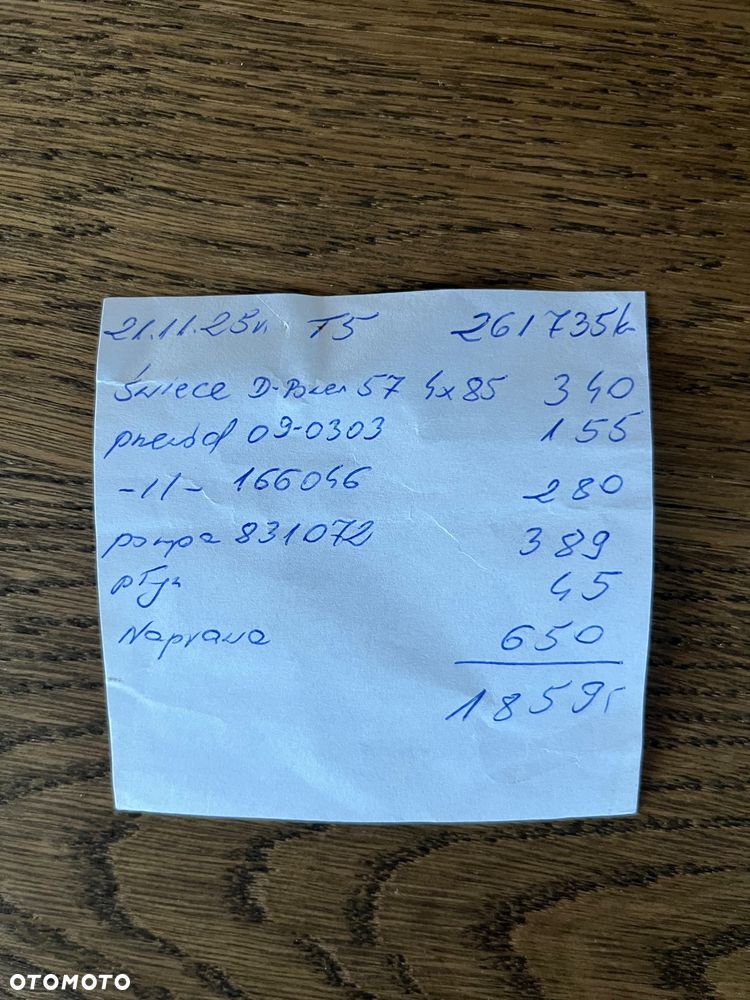 21.11.25r. T5 261735k
Świece D-Power 57 4x85 340
przewód 09-0303 155
-//- 166046 280
pompa 831072 389
płyn 45
Naprawa 650
1859,-
OTOMOTO